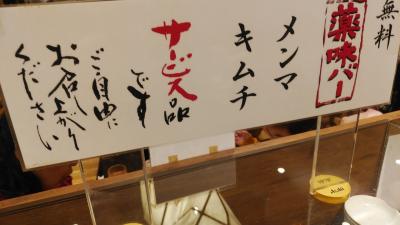 無料
薬味バー
メンマ
キムチ
サービス品
です
ご自由に
お召し上がり
ください
Asahi